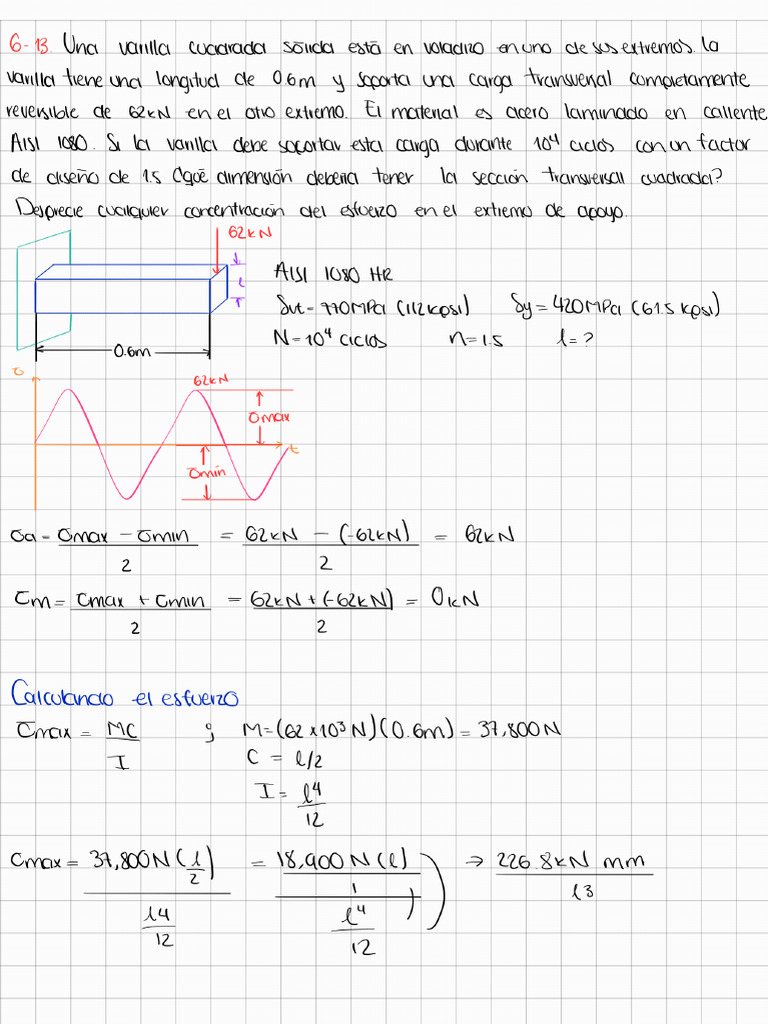 6-13. Una varilla cuadrada sólida está en voladizo en uno de sus extremos. La
varilla tiene una longitud de 0.6m y soporta una carga transversal completamente
reversible de 62kN en el otro extremo. El material es acero laminado en caliente
AISI 1080. Si la varilla debe soportar esta carga durante 10⁴ ciclos con un factor
de diseño de 1.5 ¿qué dimensión debería tener la sección transversal cuadrada?
Desprecie cualquier concentración del esfuerzo en el extremo de apoyo.
62kN
l
AISI 1080 HR
Sut = 770MPa (112 kpsi) Sy = 420MPa (61.5 kpsi)
N = 10⁴ ciclos n = 1.5 l = ?
0.6m
σ
62kN
σmax
t
σmin
σa = σmax - σmin / 2 = 62kN - (-62kN) / 2 = 62kN
σm = σmax + σmin / 2 = 62kN + (-62kN) / 2 = 0kN
Calculando el esfuerzo
σmax = MC / I ; M = (62 x10³ N)(0.6m) = 37,800N
C = l/2
I = l⁴ / 12
σmax = 37,800N (l/2) / l4/12 = 18,900N (l) / 1 / l⁴/12 → 226.8kN mm / l3